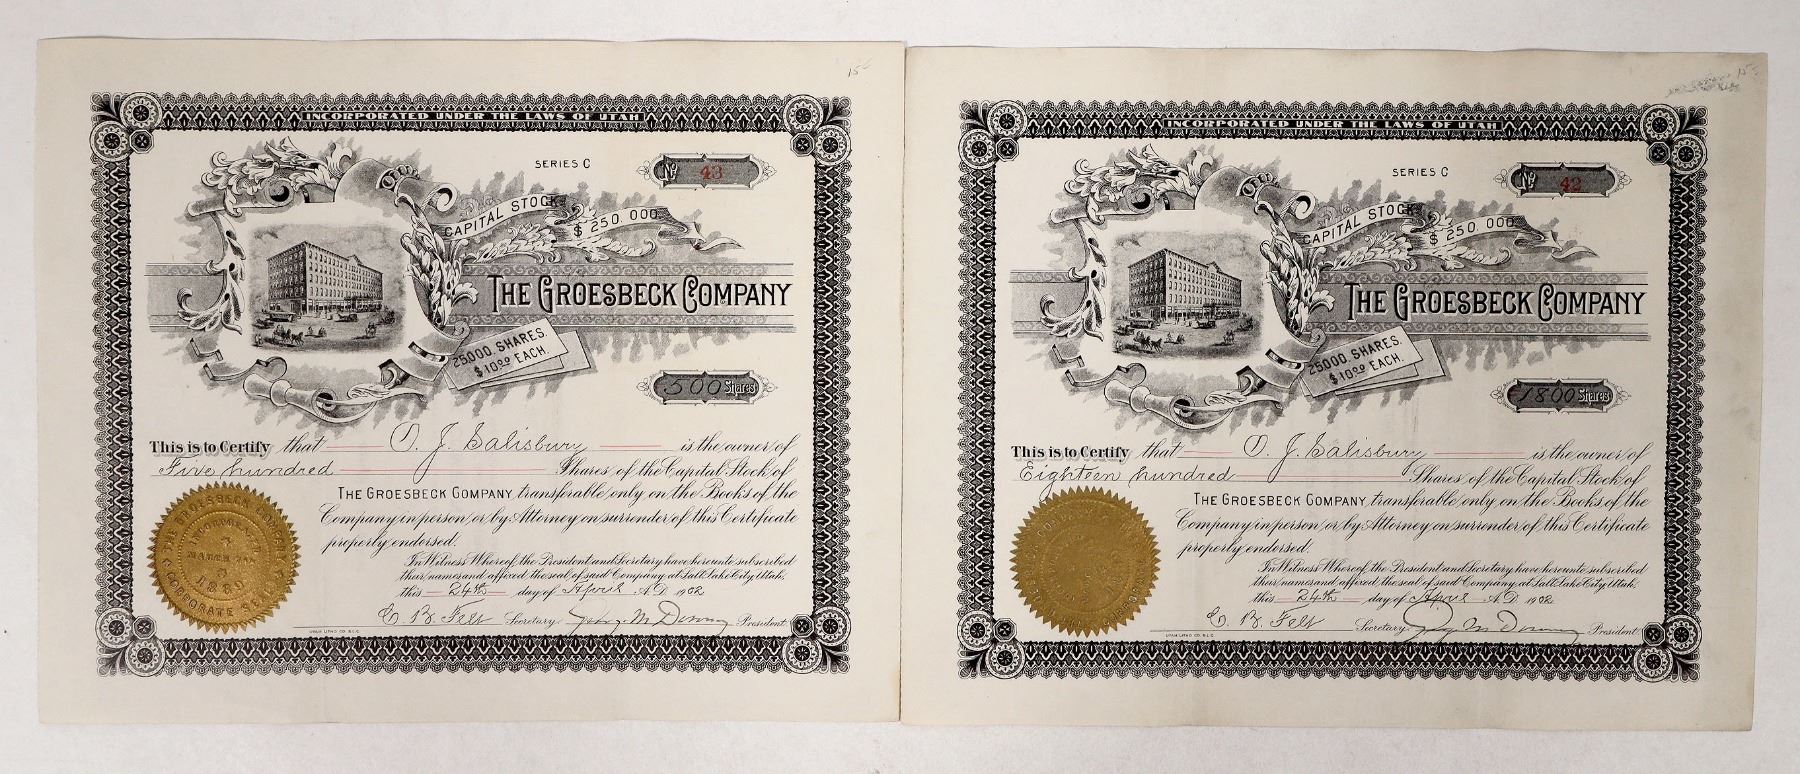 15
INCORPORATED UNDER THE LAWS OF UTAH
SERIES C
No 43
CAPITAL STOCK
$ 250.000.
THE GROESBECK COMPANY
25000. SHARES.
$10.00 EACH.
500 Shares
This is to Certify that O. J. Salisbury is the owner of
Five hundred Shares of the Capital Stock of
THE GROESBECK COMPANY, transferable only on the Books of the
Company in person or by Attorney on surrender of this Certificate
properly endorsed.
In Witness Whereof, the President and Secretary have hereunto subscribed
their names and affixed the seal of said Company at Salt Lake City, Utah,
this 24th day of April A.D. 1902
C. B. Felt Secretary. Geo. M. Downey President.
UTAH LITHO CO. S.L.C.
THE GROESBECK COMPANY
INCORPORATED
MARCH
1889
CORPORATE SEAL
15
INCORPORATED UNDER THE LAWS OF UTAH
SERIES C
No 42
CAPITAL STOCK
$ 250.000.
THE GROESBECK COMPANY
25000. SHARES.
$10.00 EACH.
1800 Shares
This is to Certify that O. J. Salisbury is the owner of
Eighteen hundred Shares of the Capital Stock of
THE GROESBECK COMPANY, transferable only on the Books of the
Company in person or by Attorney on surrender of this Certificate
properly endorsed.
In Witness Whereof, the President and Secretary have hereunto subscribed
their names and affixed the seal of said Company at Salt Lake City, Utah,
this 24th day of April A.D. 1902
C. B. Felt Secretary. Geo. M. Downey President.
UTAH LITHO CO. S.L.C.